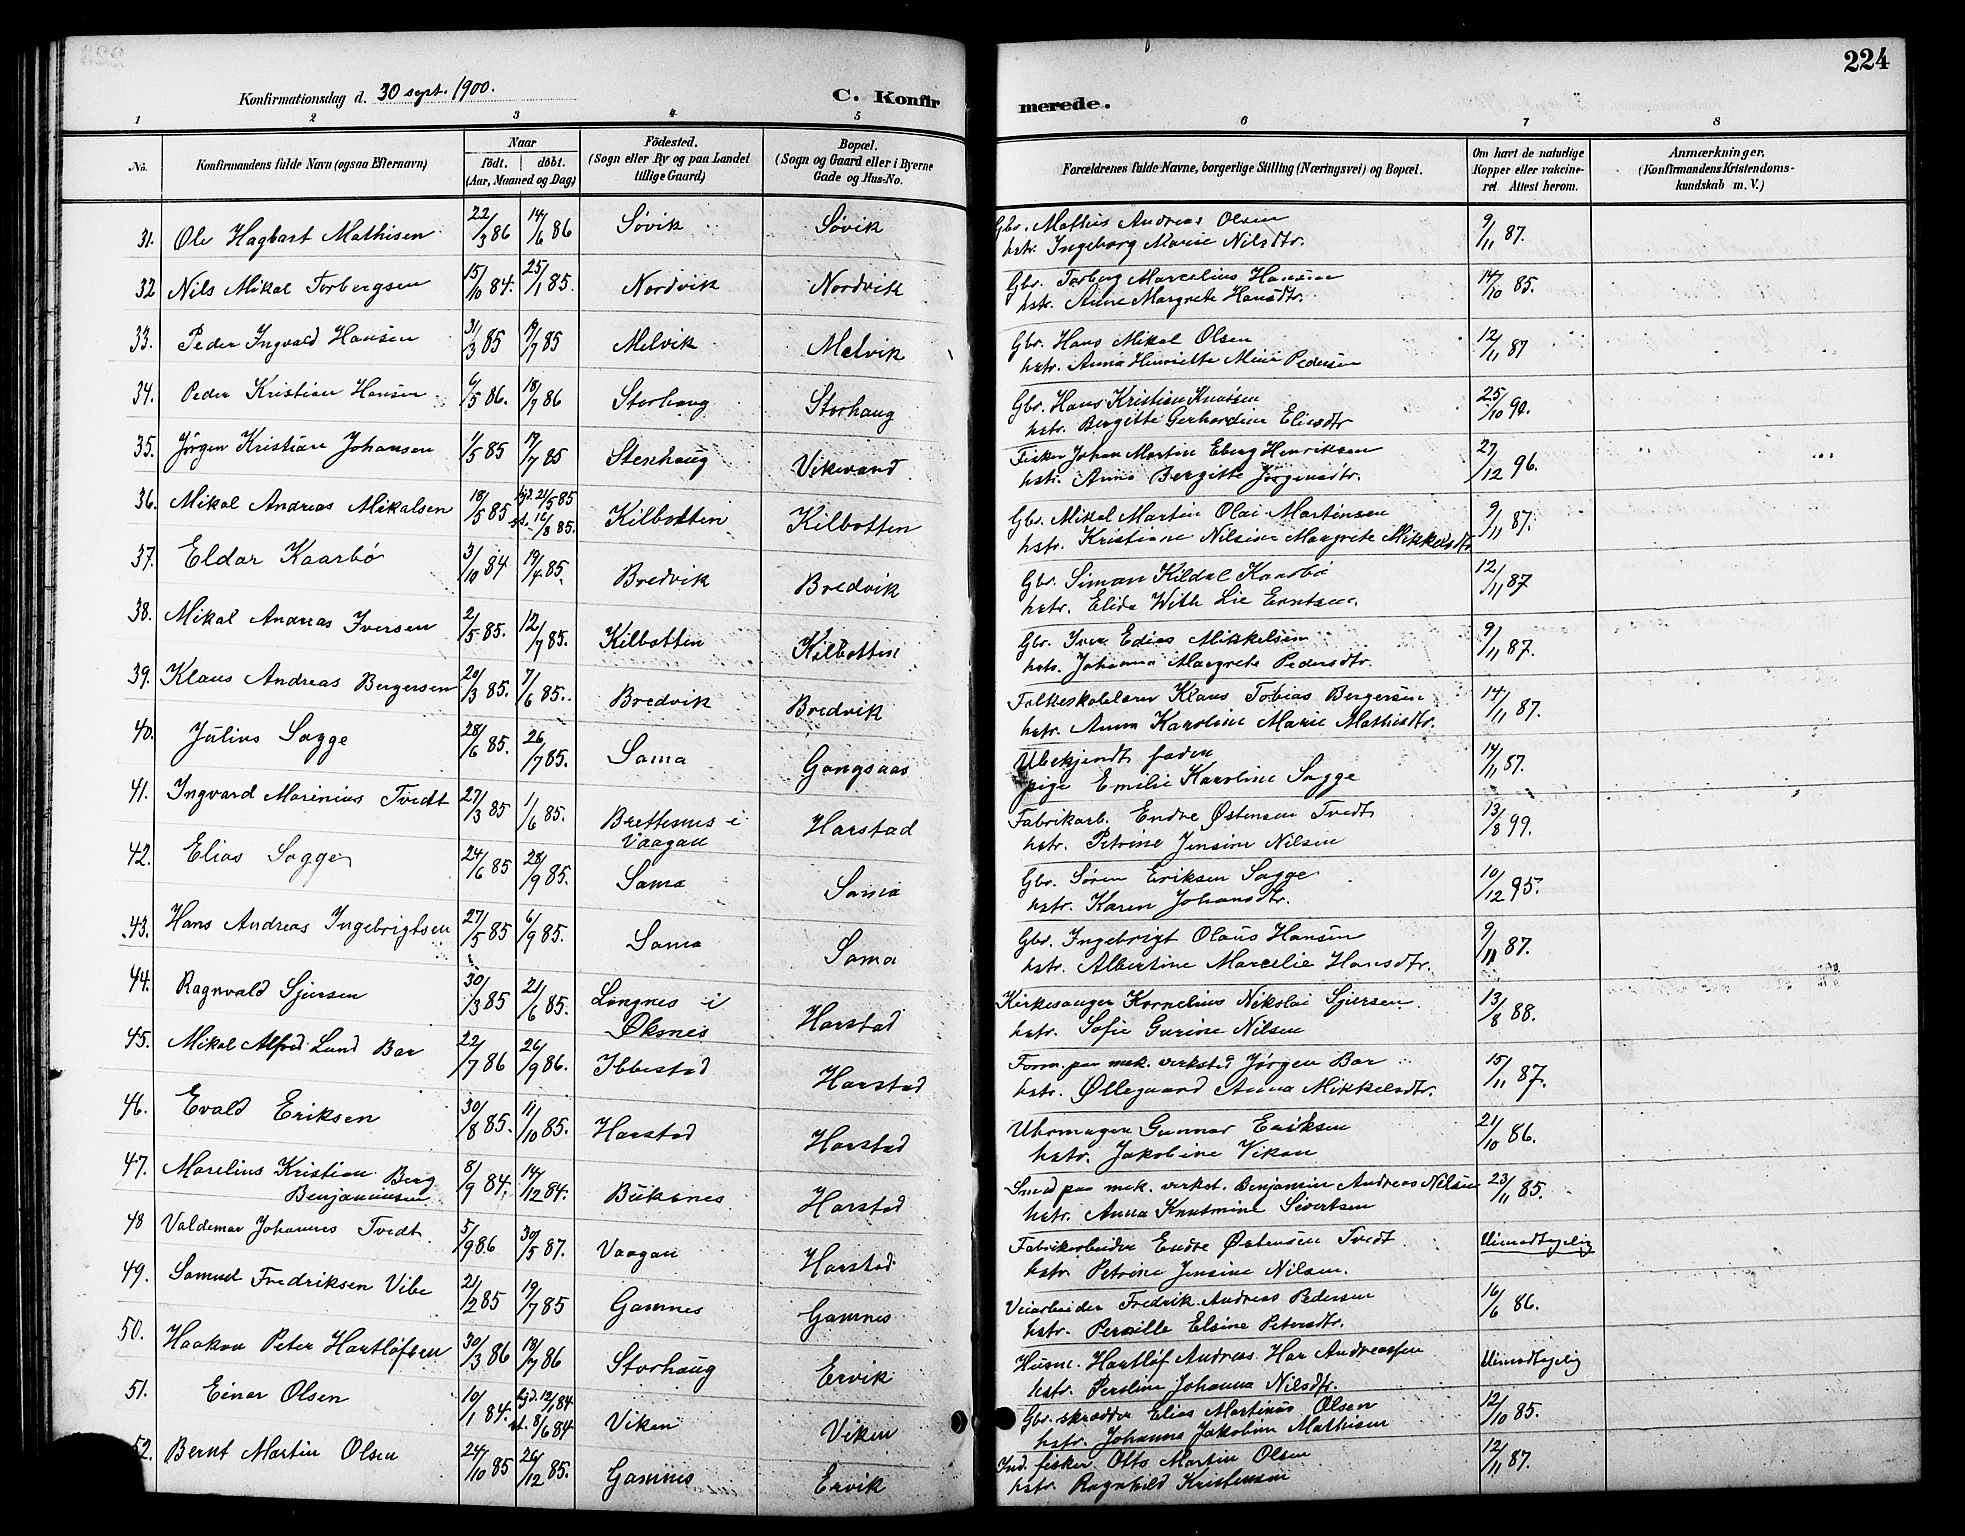 224
Konfirmationsdag d. 30 sept. 1900.
C. Konfirmerede.
1 2 3 4 5 6 7 8
No.
Konfirmandens fulde Navn (ogsaa Efternavn)
Naar
födt. döbt.
(Aar, Maaned og Dag)
Födested.
(Sogn eller By og paa Landet
tillige Gaard)
Bopæl.
(Sogn og Gaard eller i Byerne
Gade og Hus-No.
Forældrenes fulde Navne, borgerlige Stilling (Næringsvei) og Bopæl.
Om havt de naturlige
Kopper eller vakcine-
ret. Attest herom.
Anmærkninger.
(Konfirmandens Kristendoms-
kundskab m. V.)
31. Ole Hagbart Mathisen 22/3 86 14/6 86 Søvik Søvik Gbr. Mathis Andreas Olsen 9/11 87.
hstr. Ingeborg Marie Nilsdtr.
32 Nils Mikal Torbergsen 15/10 84. 25/1 85. Nordvik Nordvik Gbr. Torberg Marcelius Hansen 14/10 85.
hstr. Anne Margrete Hansdtr.
33. Peder Ingvald Hansen 31/3 85 19/7 85 Melvik Melvik Gbr. Hans Mikal Olsen 12/11 87
hstr. Anna Henriette Mine Pedersen
34. Peder Kristian Hansen 6/5 86. 18/7 86 Storhaug Storhaug Gbr. Hans Kristian Knudsen 25/10 90.
hstr. Bergitte Gerhardine Eliasdtr
35. Jørgen Kristian Johansen 1/5 85 19/7 85 Stenhaug Vikevand. Fisker Johan Martin Eberg Henriksen 27/12 96.
hstr. Anna Bergitte Jørgensdtr.
36. Mikal Andreas Mikalsen 18/5 85 hjd. 21/5 85 Kilbotten Kilbotten Gbr. Mikal Martin Olai Martinsen 9/11 87.
st. 16/8 85. hstr. Kristiane Nilsine Margrete Mikkelsdtr
37. Eldar Kaarbø 3/10 84 19/4 85. Bredvik Bredvik Gbr. Simon Kildal Kaarbø 12/11 87
hstr. Elida With Lie Erntsen.
38. Mikal Andreas Iversen 2/5 85. 12/7 85. Kilbotten Kilbotten Gbr. Iver Edias Mikkelsen 9/11 87.
hstr. Johanna Margrete Pedersdtr.
39. Klaus Andreas Bergersen 20/3 85. 7/6 85. Bredvik Bredvik Folkeskolelærer Klaus Tobias Bergersen 14/11 87.
hstr. Anna Karoline Marie Mathisdtr.
40. Julius Sagge 28/6 85. 26/7 85. Sama Gangsaas Ubekjendt fader 14/11 87.
pige Emilie Karoline Sagge
41. Ingvard Marinius Tvedt 27/3 85 1/6 85. Brettesnes i Harstad Fabrikarb. Endre Østensen Tvedt 13/8 99.
Vaagan hstr. Petrine Jensine Nilsen
42. Elias Sagge 24/6 85 28/9 85. Sama Sama Gbr. Søren Eriksen Sagge 10/12 95.
hstr. Karen Johansdtr.
43. Hans Andreas Ingebrigtsen 27/5 85 6/9 85. Sama Sama Gbr. Ingebrigt Olaus Hansen 9/11 87.
hstr. Albertine Marcelie Hansdtr.
44. Ragnvald Sjursen 30/3 85 21/6 85. Langnes i Harstad Kirkesanger Kornelius Nikolai Sjursen 13/8 88.
Øksnes hstr. Sofie Gurine Nilsen
45. Mikal Alfred Lund Bar 22/7 86 26/9 86. Ibbestad Harstad Form. paa mek. verksted Jørgen Bar 15/11 87.
hstr. Øllegaard Anna Mikkelsdtr.
46. Evald Eriksen 30/8 85. 11/10 85. Harstad Harstad Uhrmager Gunnar Eriksen 21/10 86.
hstr. Jakobine Vikan
47. Marelius Kristian Berg 8/9 84. 14/12 84. Buksnes Harstad Smed paa mek. verkst. Benjamin Andreas Nilsen 23/11 85.
Benjaminsen hstr. Anna Knutmine Sivertsen
48 Valdemar Johannes Tvedt. 5/9 86 30/5 87. Vaagan Harstad Fabrikarbeider Endre Østensen Tvedt Uimodtagelig
hstr. Petrine Jensine Nilsen.
49. Samuel Fredriksen Vibe 21/2 85 19/7 85 Gamnes Gamnes Veiarbeider Fredrik Andreas Pedersen 16/6 86.
hstr. Pernille Elsine Petersdtr.
50. Haakon Peter Hartløfsen 30/3 86 18/7 86 Storhaug Ervik Husm. Hartløf Andreas Har Andreassen Uimodtagelig
hstr. Peroline Johanna Nilsdtr.
51. Einar Olsen 10/1 84. hjd. 12/1 84 Viken Viken Gbr. skrædder Elias Martinus Olsen 12/10 85.
st. 8/6 84 hstr. Johanna Jakobine Mathisen
52. Bernt Martin Olsen 24/10 85 26/12 85. Gamnes Ervik Ind. fisker Otto Martin Olsen 12/11 87.
hstr. Ragnhild Kristensen